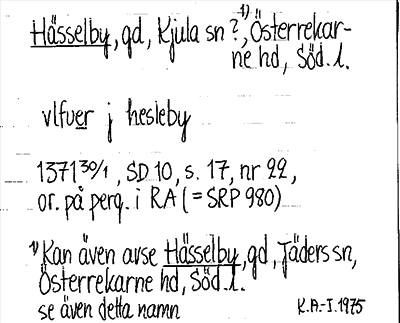 Hässelby, gd, Kjula sn ?¹⁾, Österrekar-
ne hd, Söd. l.
vlfuer j hesleby
1371 30/1, SD 10, s. 17, nr 22,
or. på perg. i RA (= SRP 980)
¹⁾ Kan även avse Hässelby, gd, Jäders sn,
Österrekarne hd, Söd. l.
se även detta namn
K.A.-I. 1975